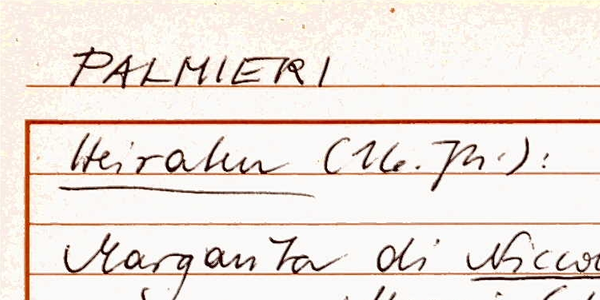 PALMIERI
Heiraten (16. Jh.):
Margarita di Niccol